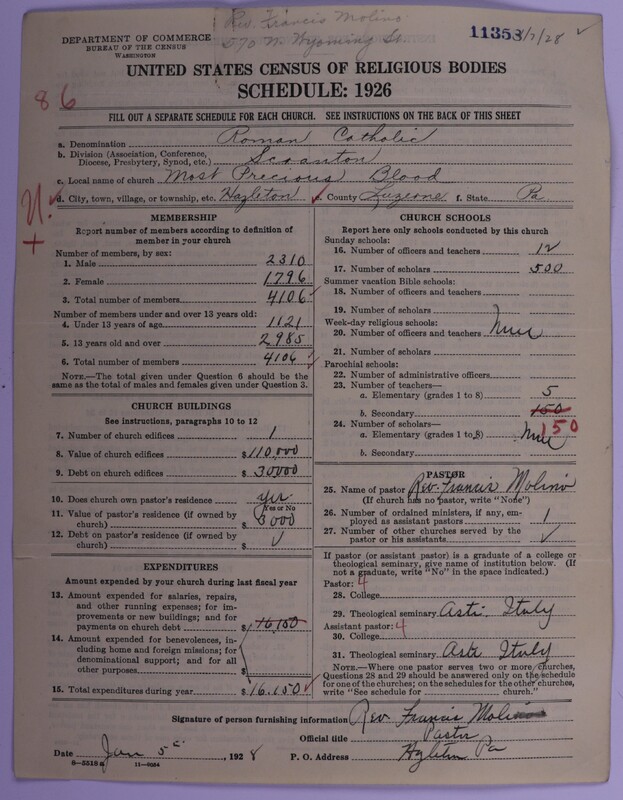 Rev. Francis Molino
570 W. Wyoming St.
11353 /7/28 ✓
DEPARTMENT OF COMMERCE
BUREAU OF THE CENSUS
WASHINGTON
UNITED STATES CENSUS OF RELIGIOUS BODIES
SCHEDULE: 1926
86
FILL OUT A SEPARATE SCHEDULE FOR EACH CHURCH. SEE INSTRUCTIONS ON THE BACK OF THIS SHEET
a. Denomination Roman Catholic
b. Division (Association, Conference, Diocese, Presbytery, Synod, etc.) Scranton
c. Local name of church Most Precious Blood
d. City, town, village, or township, etc. Hazleton e. County Luzerne f. State Pa
U.
+
MEMBERSHIP
Report number of members according to definition of
member in your church
Number of members, by sex:
1. Male 2310
2. Female 1796
3. Total number of members 4106 ✓
Number of members under and over 13 years old:
4. Under 13 years of age 1121
5. 13 years old and over 2985
6. Total number of members 4106 ✓
NOTE.—The total given under Question 6 should be the
same as the total of males and females given under Question 3.
CHURCH BUILDINGS
See instructions, paragraphs 10 to 12
7. Number of church edifices 1
8. Value of church edifices $110,000
9. Debt on church edifices $30000
10. Does church own pastor's residence yes
(Yes or No)
11. Value of pastor's residence (if owned by
church) $ 8000
12. Debt on pastor's residence (if owned by
church) $ ✓
EXPENDITURES
Amount expended by your church during last fiscal year
13. Amount expended for salaries, repairs,
and other running expenses; for im-
provements or new buildings; and for
payments on church debt $ 16,150
14. Amount expended for benevolences, in-
cluding home and foreign missions; for
denominational support; and for all
other purposes $
15. Total expenditures during year $16.150 ✓
CHURCH SCHOOLS
Report here only schools conducted by this church
Sunday schools:
16. Number of officers and teachers 12
17. Number of scholars 500
Summer vacation Bible schools:
18. Number of officers and teachers
19. Number of scholars
Week-day religious schools:
20. Number of officers and teachers
21. Number of scholars
Parochial schools:
22. Number of administrative officers
23. Number of teachers—
a. Elementary (grades 1 to 8) 5
b. Secondary 150
24. Number of scholars— 150
a. Elementary (grades 1 to 8)
b. Secondary
PASTOR
25. Name of pastor Rev. Francis Molino
(If church has no pastor, write "None")
26. Number of ordained ministers, if any, em-
ployed as assistant pastors 1
27. Number of other churches served by the
pastor or his assistants ✓
If pastor (or assistant pastor) is a graduate of a college or
theological seminary, give name of institution below. (If
not a graduate, write "No" in the space indicated.)
Pastor: 4
28. College
29. Theological seminary Asti Italy
Assistant pastor: 4
30. College
31. Theological seminary Asti Italy
NOTE.—Where one pastor serves two or more churches,
Questions 28 and 29 should be answered only on the schedule
for one of the churches; on the schedules for the other churches,
write "See schedule for church."
Signature of person furnishing information Rev. Francis Molino
Official title Pastor
Date Jan 5 1928 P. O. Address Hazleton Pa
8—5518 a 11—9064